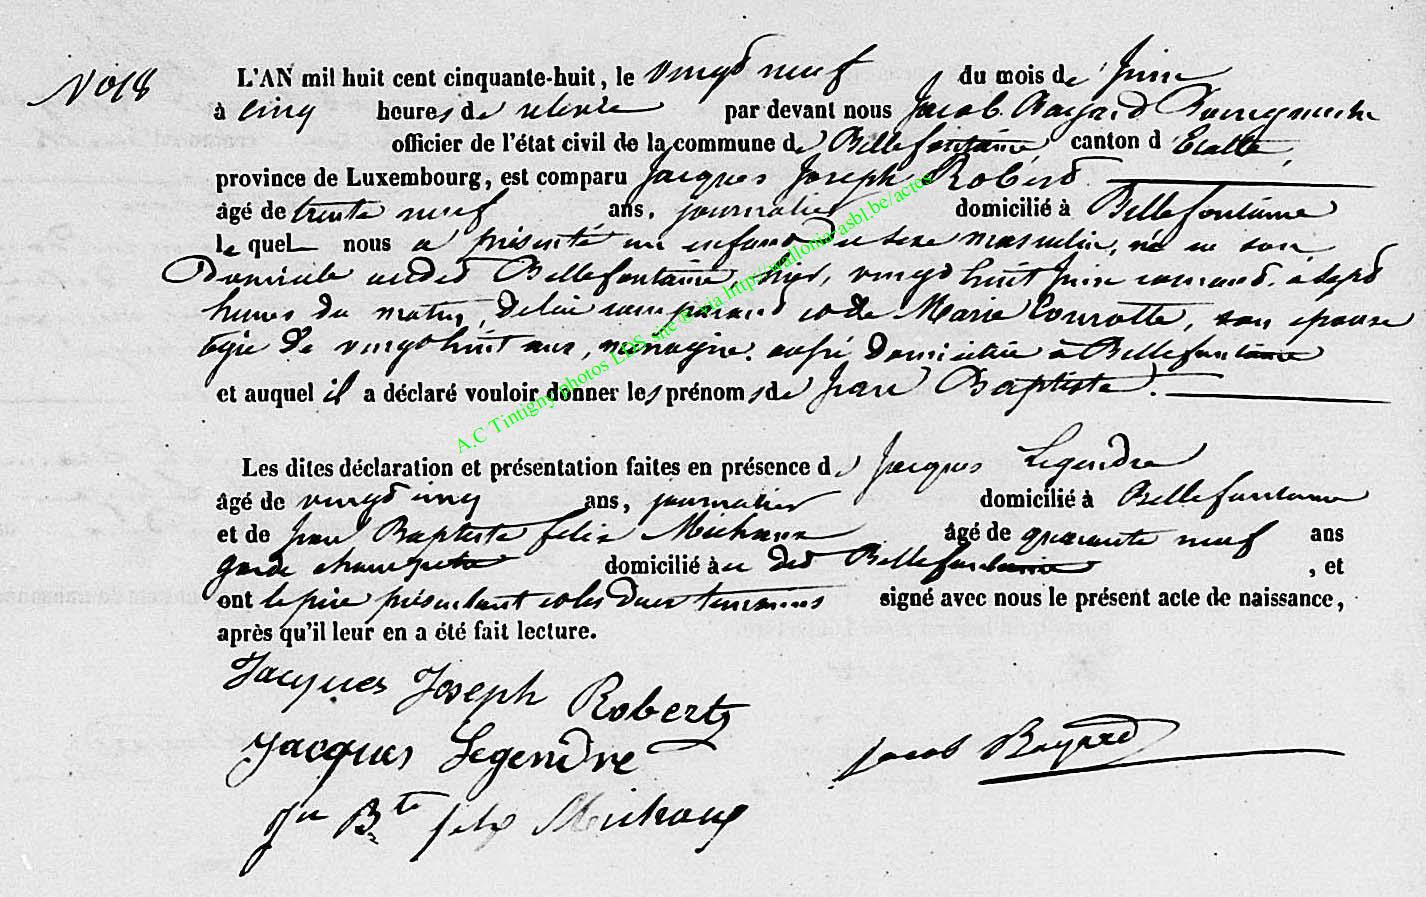 N° 18
L'AN mil huit cent cinquante-huit, le vingt neuf du mois de Juin
à cinq heures de relevée par devant nous Jacob Bayard Bourgmestre
officier de l'état civil de la commune de Bellefontaine canton d'Etalle,
province de Luxembourg, est comparu Jacques Joseph Robert
âgé de trente neuf ans, journalier domicilié à Bellefontaine
lequel nous a présenté un enfant du sexe masculin, né en son
Domicile audit Bellefontaine, hier, vingt huit Juin courant, à sept
heures du matin, de lui comparant et de Marie Courotte, son épouse
âgée de vingt huit ans, ménagère, aussi domiciliée à Bellefontaine
et auquel il a déclaré vouloir donner les prénoms de Jean Baptiste.
Les dites déclaration et présentation faites en présence de Jacques Legendre
âgé de vingt cinq ans, journalier domicilié à Bellefontaine
et de Jean Baptiste felix Michaux âgé de quarante neuf ans
garde champetre domicilié à u dit Bellefontaine, et
ont le père présentant et les deux temoins signé avec nous le présent acte de naissance,
après qu'il leur en a été fait lecture.
Jacques Joseph Robert
Jacques Legendre
Jacob Bayard
Jn Bte felix Michaux
A.C Tintigny photos LDS, site © via http://wallonia-asbl.be/actes